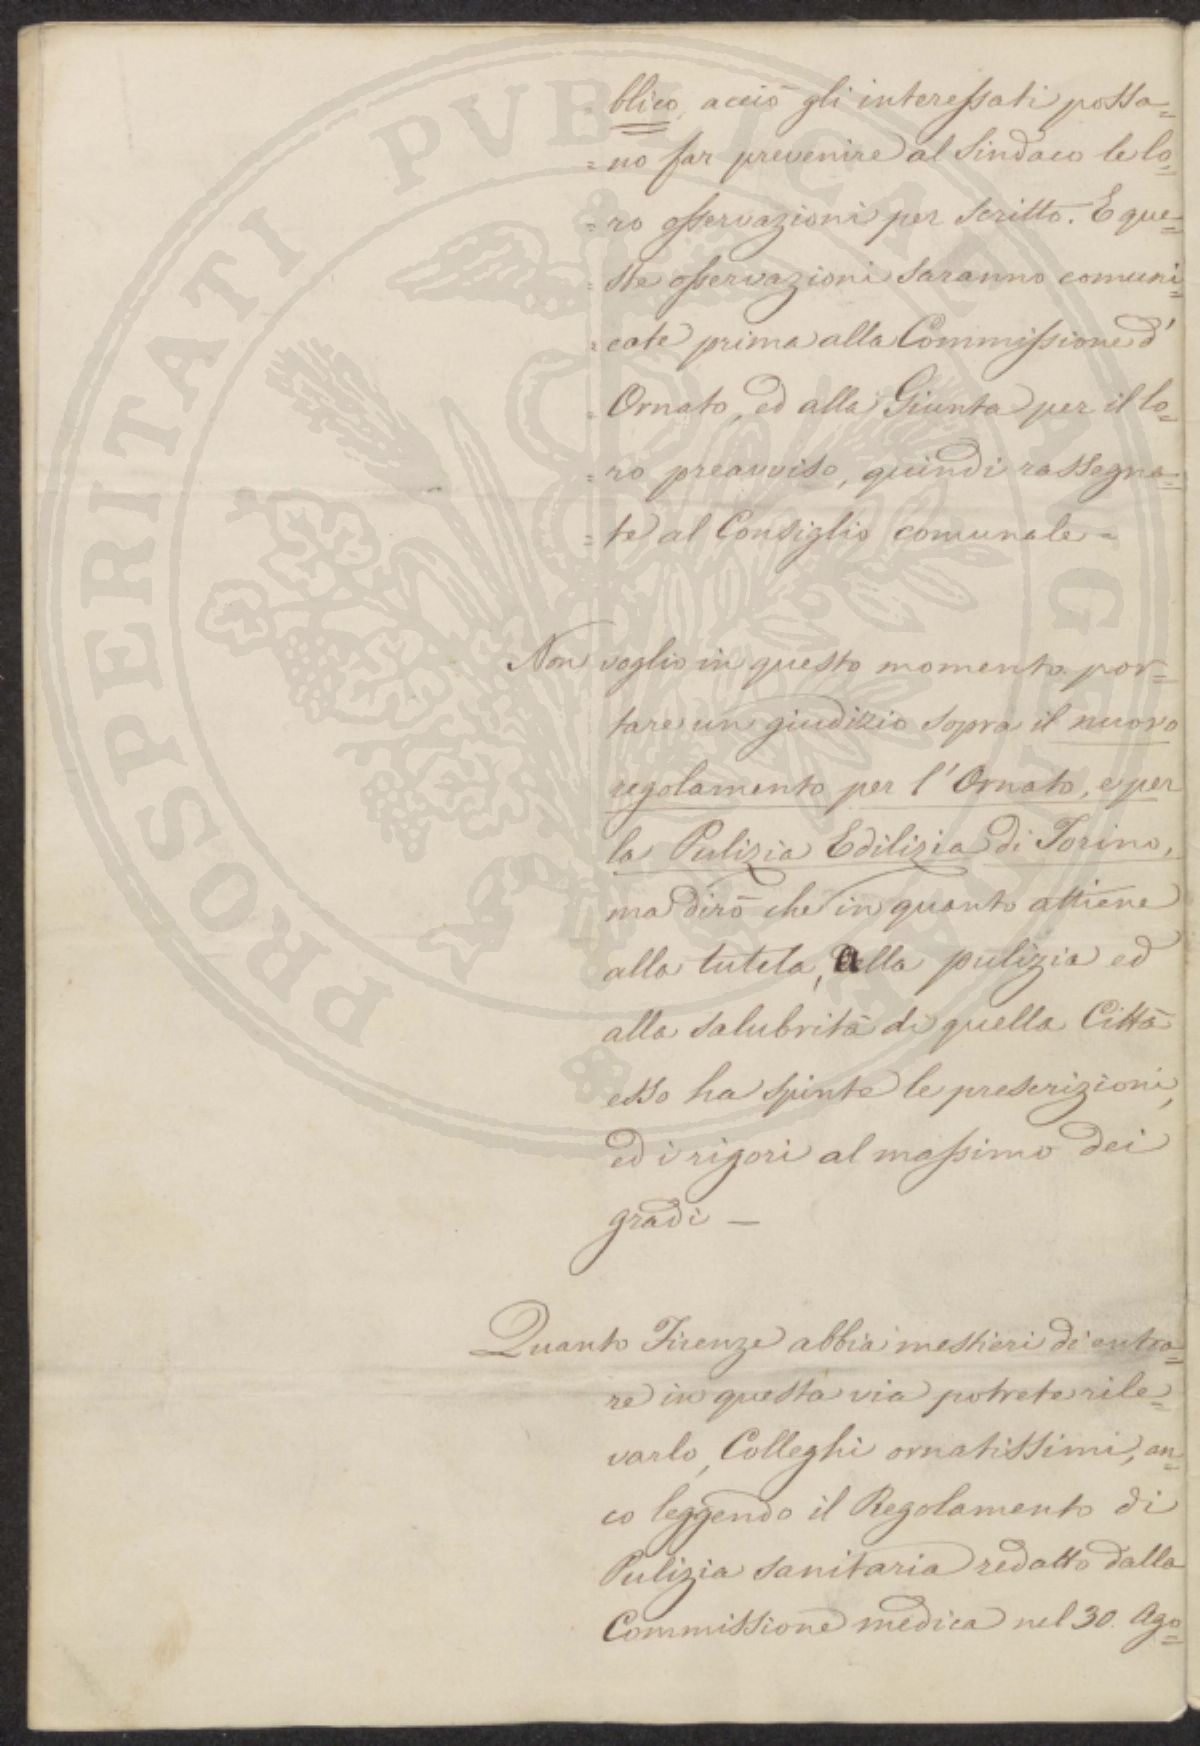 blico, acciò gli interessati possa=
=no far prevenire al Sindaco le lo=
=ro osservazioni per scritto. E que=
=ste osservazioni saranno comuni=
=cate prima alla Commissione d'
=Ornato, ed alla Giunta per il lo=
=ro preavviso, quindi rassegna=
=te al Consiglio comunale=
Non voglio in questo momento por=
tare un giudizio sopra il nuovo
regolamento per l'Ornato, e per
la Pulizia Edilizia di Torino,
ma dirò che in quanto attiene
alla tutela, alla pulizia ed
alla salubrità di quella Città
esso ha spinte le prescrizioni,
ed i rigori al massimo dei
gradi —
Quanto Firenze abbia mestieri di entra=
re in questa via potrete rile=
varlo, Colleghi ornatissimi, an=
co leggendo il Regolamento di
Pulizia sanitaria redatto dalla
Commissione medica nel 30. Ago=
PROSPERITATI PVBLICAE AVGENDAE